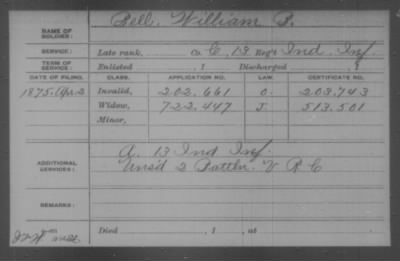 NAME OF SOLDIER: Bell, William P.
SERVICE: Late rank, Co. C, 13 Reg't Ind. Inf.
TERM OF SERVICE: Enlisted , 1 Discharged , 1
DATE OF FILING. CLASS. APPLICATION NO. LAW. CERTIFICATE NO.
1875. Apr. 2 Invalid, 202.661 O. 203.743
Widow, 722.447 J. 513.501
Minor,
ADDITIONAL SERVICES: A. 13 Ind Inf.
Unas'd 2 Battln. V R C
REMARKS:
Died , 1 , at